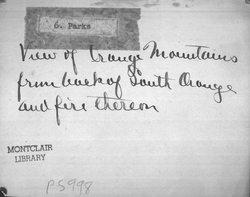 6. Parks
View of Orange Mountains
from back of South Orange
and fire thereon
MONTCLAIR
LIBRARY
P5998